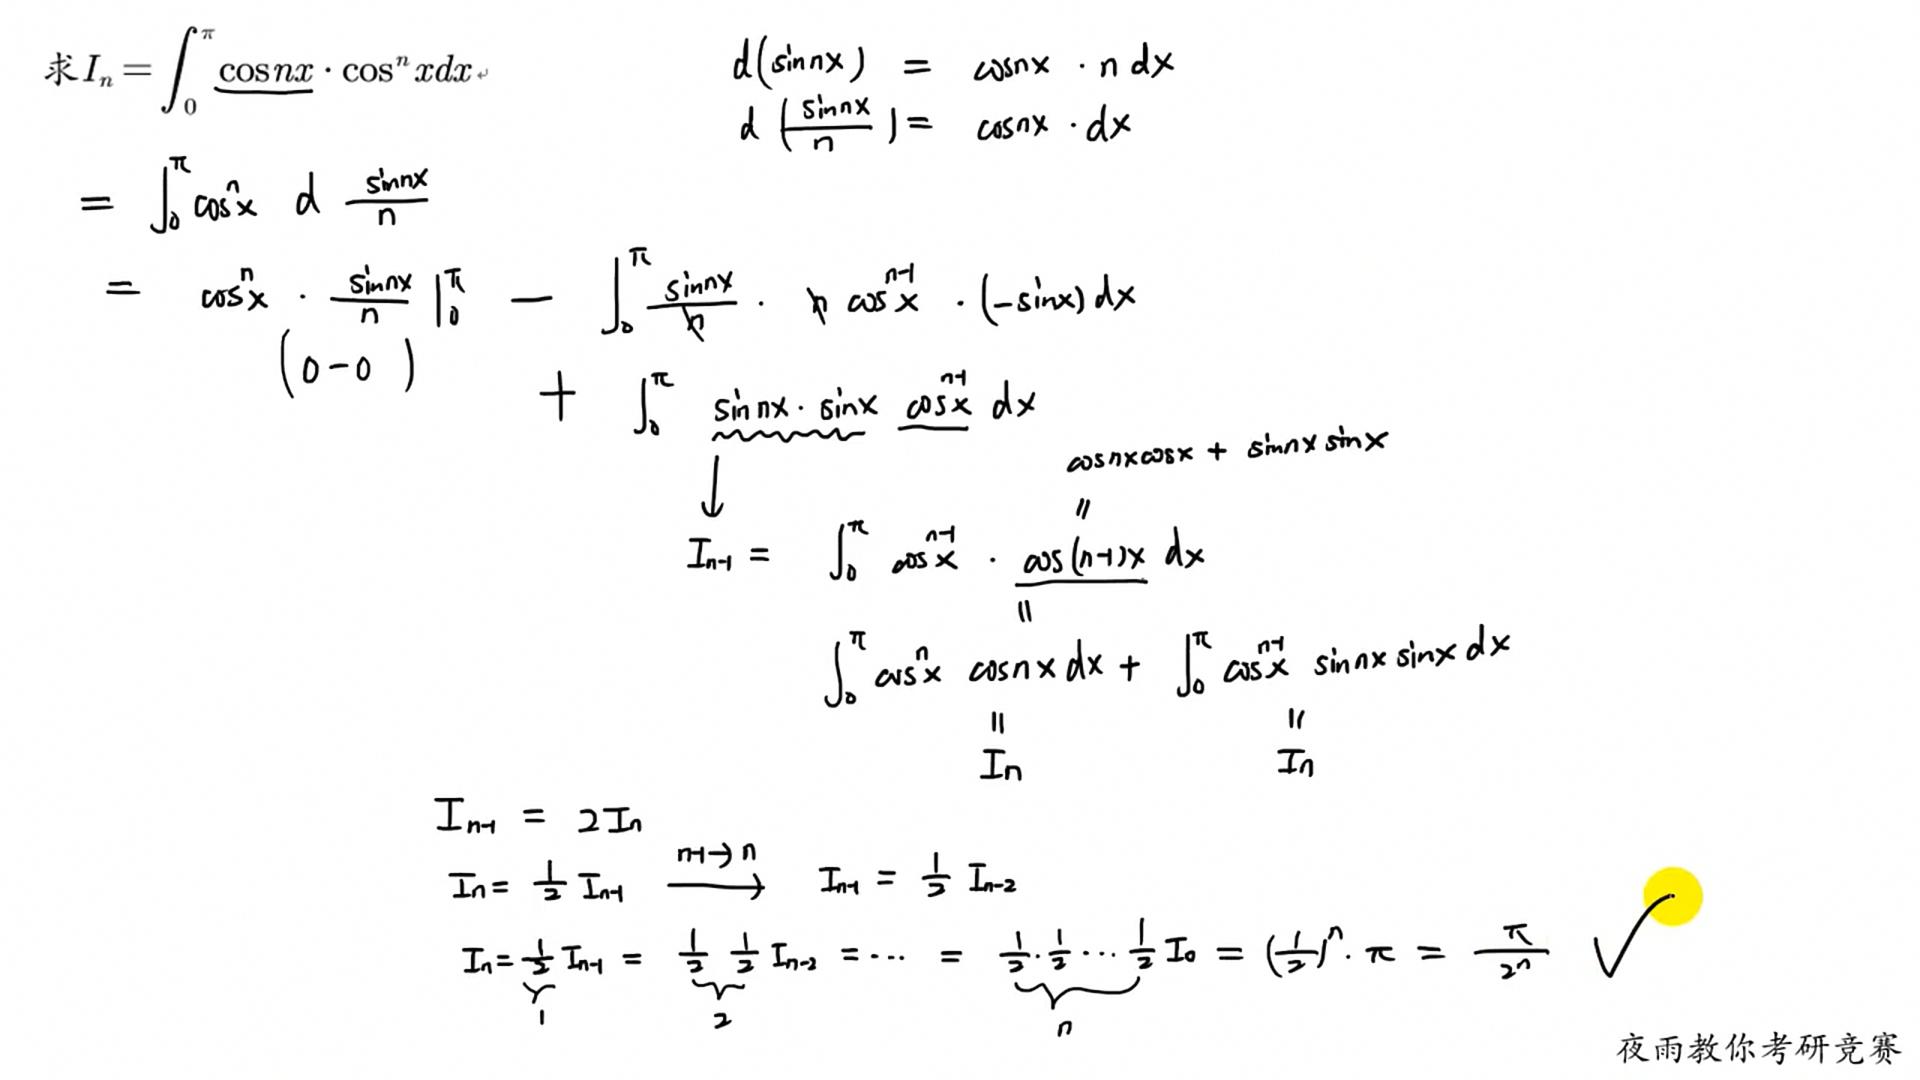 求 Iₙ = ∫₀^π cos nx · cosⁿ x dx
d(sin nx) = cos nx · n dx
d(sin nx / n) = cos nx · dx
= ∫₀^π cosⁿx d (sin nx / n)
= cosⁿx · (sin nx / n) |₀^π − ∫₀^π (sin nx / n) · n cosⁿ⁻¹x · (−sin x) dx
(0−0)
+ ∫₀^π sin nx · sin x cosⁿ⁻¹x dx
cos nx cos x + sin nx sin x
↓ =
Iₙ₋₁ = ∫₀^π cosⁿ⁻¹x · cos(n−1)x dx
=
∫₀^π cosⁿx cos nx dx + ∫₀^π cosⁿ⁻¹x sin nx sin x dx
= =
Iₙ Iₙ
Iₙ₋₁ = 2Iₙ
Iₙ = 1/2 Iₙ₋₁ n-1→n → Iₙ₋₁ = 1/2 Iₙ₋₂
Iₙ = 1/2 Iₙ₋₁ = 1/2 1/2 Iₙ₋₂ = ··· = 1/2 · 1/2 ··· 1/2 I₀ = (1/2)ⁿ · π = π/2ⁿ ✓
1 2 n
夜雨教你考研竞赛